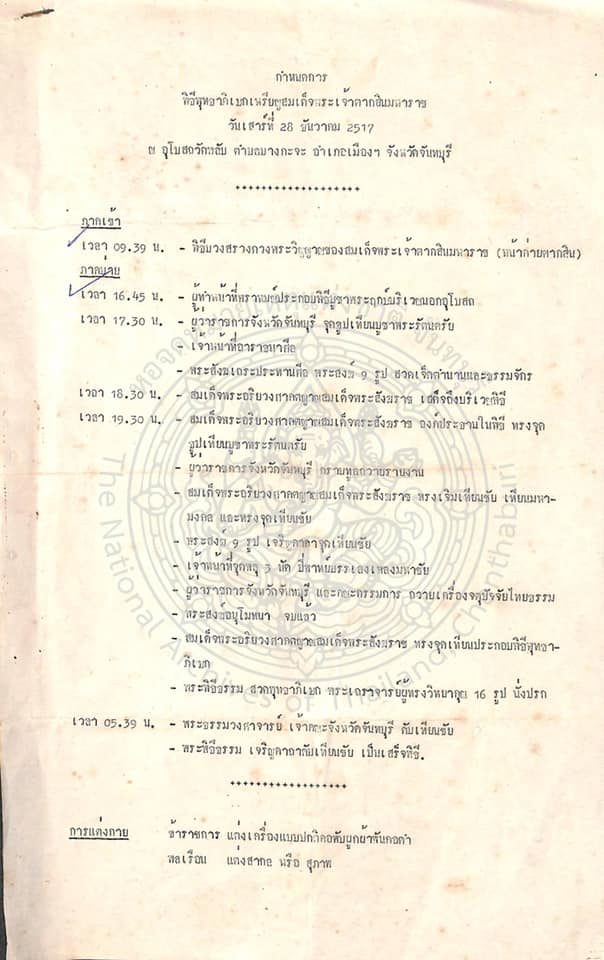 กำหนดการ
พิธีพุทธาภิเษกเหรียญสมเด็จพระเจ้าตากสินมหาราช
วันเสาร์ที่ 28 ธันวาคม 2517
ณ อุโบสถวัดพลับ ตำบลบางกะจะ อำเภอเมืองฯ จังหวัดจันทบุรี
++++++++++++++++++
ภาคเช้า
เวลา 09.39 น. - พิธีบวงสรวงดวงพระวิญญาณของสมเด็จพระเจ้าตากสินมหาราช (หน้าค่ายตากสิน)
ภาคบ่าย
เวลา 16.45 น. - ผู้ทำหน้าที่พราหมณ์ประกอบพิธีบูชาพระฤกษ์บริเวณนอกอุโบสถ
เวลา 17.30 น. - ผู้ว่าราชการจังหวัดจันทบุรี จุดธูปเทียนบูชาพระรัตนตรัย
- เจ้าหน้าที่อาราธนาศีล
- พระสังฆเถระประทานศีล พระสงฆ์ 9 รูป สวดเจ็ดตำนานและธรรมจักร
เวลา 18.30 น. - สมเด็จพระอริยวงศาคตญาณสมเด็จพระสังฆราช เสด็จถึงบริเวณพิธี
เวลา 19.30 น. - สมเด็จพระอริยวงศาคตญาณสมเด็จพระสังฆราช องค์ประธานในพิธี ทรงจุด
ธูปเทียนบูชาพระรัตนตรัย
- ผู้ว่าราชการจังหวัดจันทบุรี กราบทูลถวายรายงาน
- สมเด็จพระอริยวงศาคตญาณสมเด็จพระสังฆราช ทรงเจิมเทียนชัย เทียนมหา-
มงคล และทรงจุดเทียนชัย
- พระสงฆ์ 9 รูป เจริญคาถาจุดเทียนชัย
- เจ้าหน้าที่จุดพลุ 3 นัด ปี่พาทย์บรรเลงเพลงมหาชัย
- ผู้ว่าราชการจังหวัดจันทบุรี และคณะกรรมการ ถวายเครื่องจตุปัจจัยไทยธรรม
- พระสงฆ์อนุโมทนา จบแล้ว
- สมเด็จพระอริยวงศาคตญาณสมเด็จพระสังฆราช ทรงจุดเทียนประกอบพิธีพุทธา-
ภิเษก
- พระพิธีธรรม สวดพุทธาภิเษก พระเถราจารย์ผู้ทรงวิทยาคุณ 16 รูป นั่งปรก
เวลา 05.39 น. - พระธรรมวงศาจารย์ เจ้าคณะจังหวัดจันทบุรี ดับเทียนชัย
- พระพิธีธรรม เจริญคาถาดับเทียนชัย เป็นเสร็จพิธี.
+++++++++++++++++
การแต่งกาย ข้าราชการ แต่งเครื่องแบบปกติคอพับผูกผ้าพันคอดำ
พลเรือน แต่งสากล หรือ สุภาพ
หอจดหมายเหตุแห่งชาติ จันทบุรี
The National Archives of Thailand, Chanthaburi